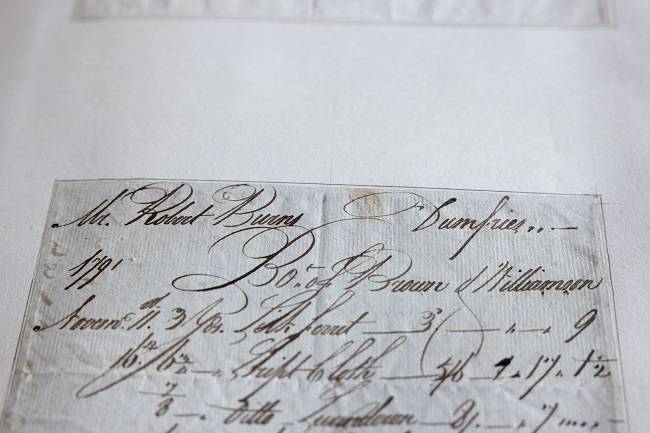 Mr. Robert Burns Dumfries..—
1791 Bo.t of Brown & Williamson
Novem.r 11. 3 yds. Silk ferret — 3 — " — " — 9
Stript Cloth — 17 " 1½
7/8 — " ditto — 8/. — " 7